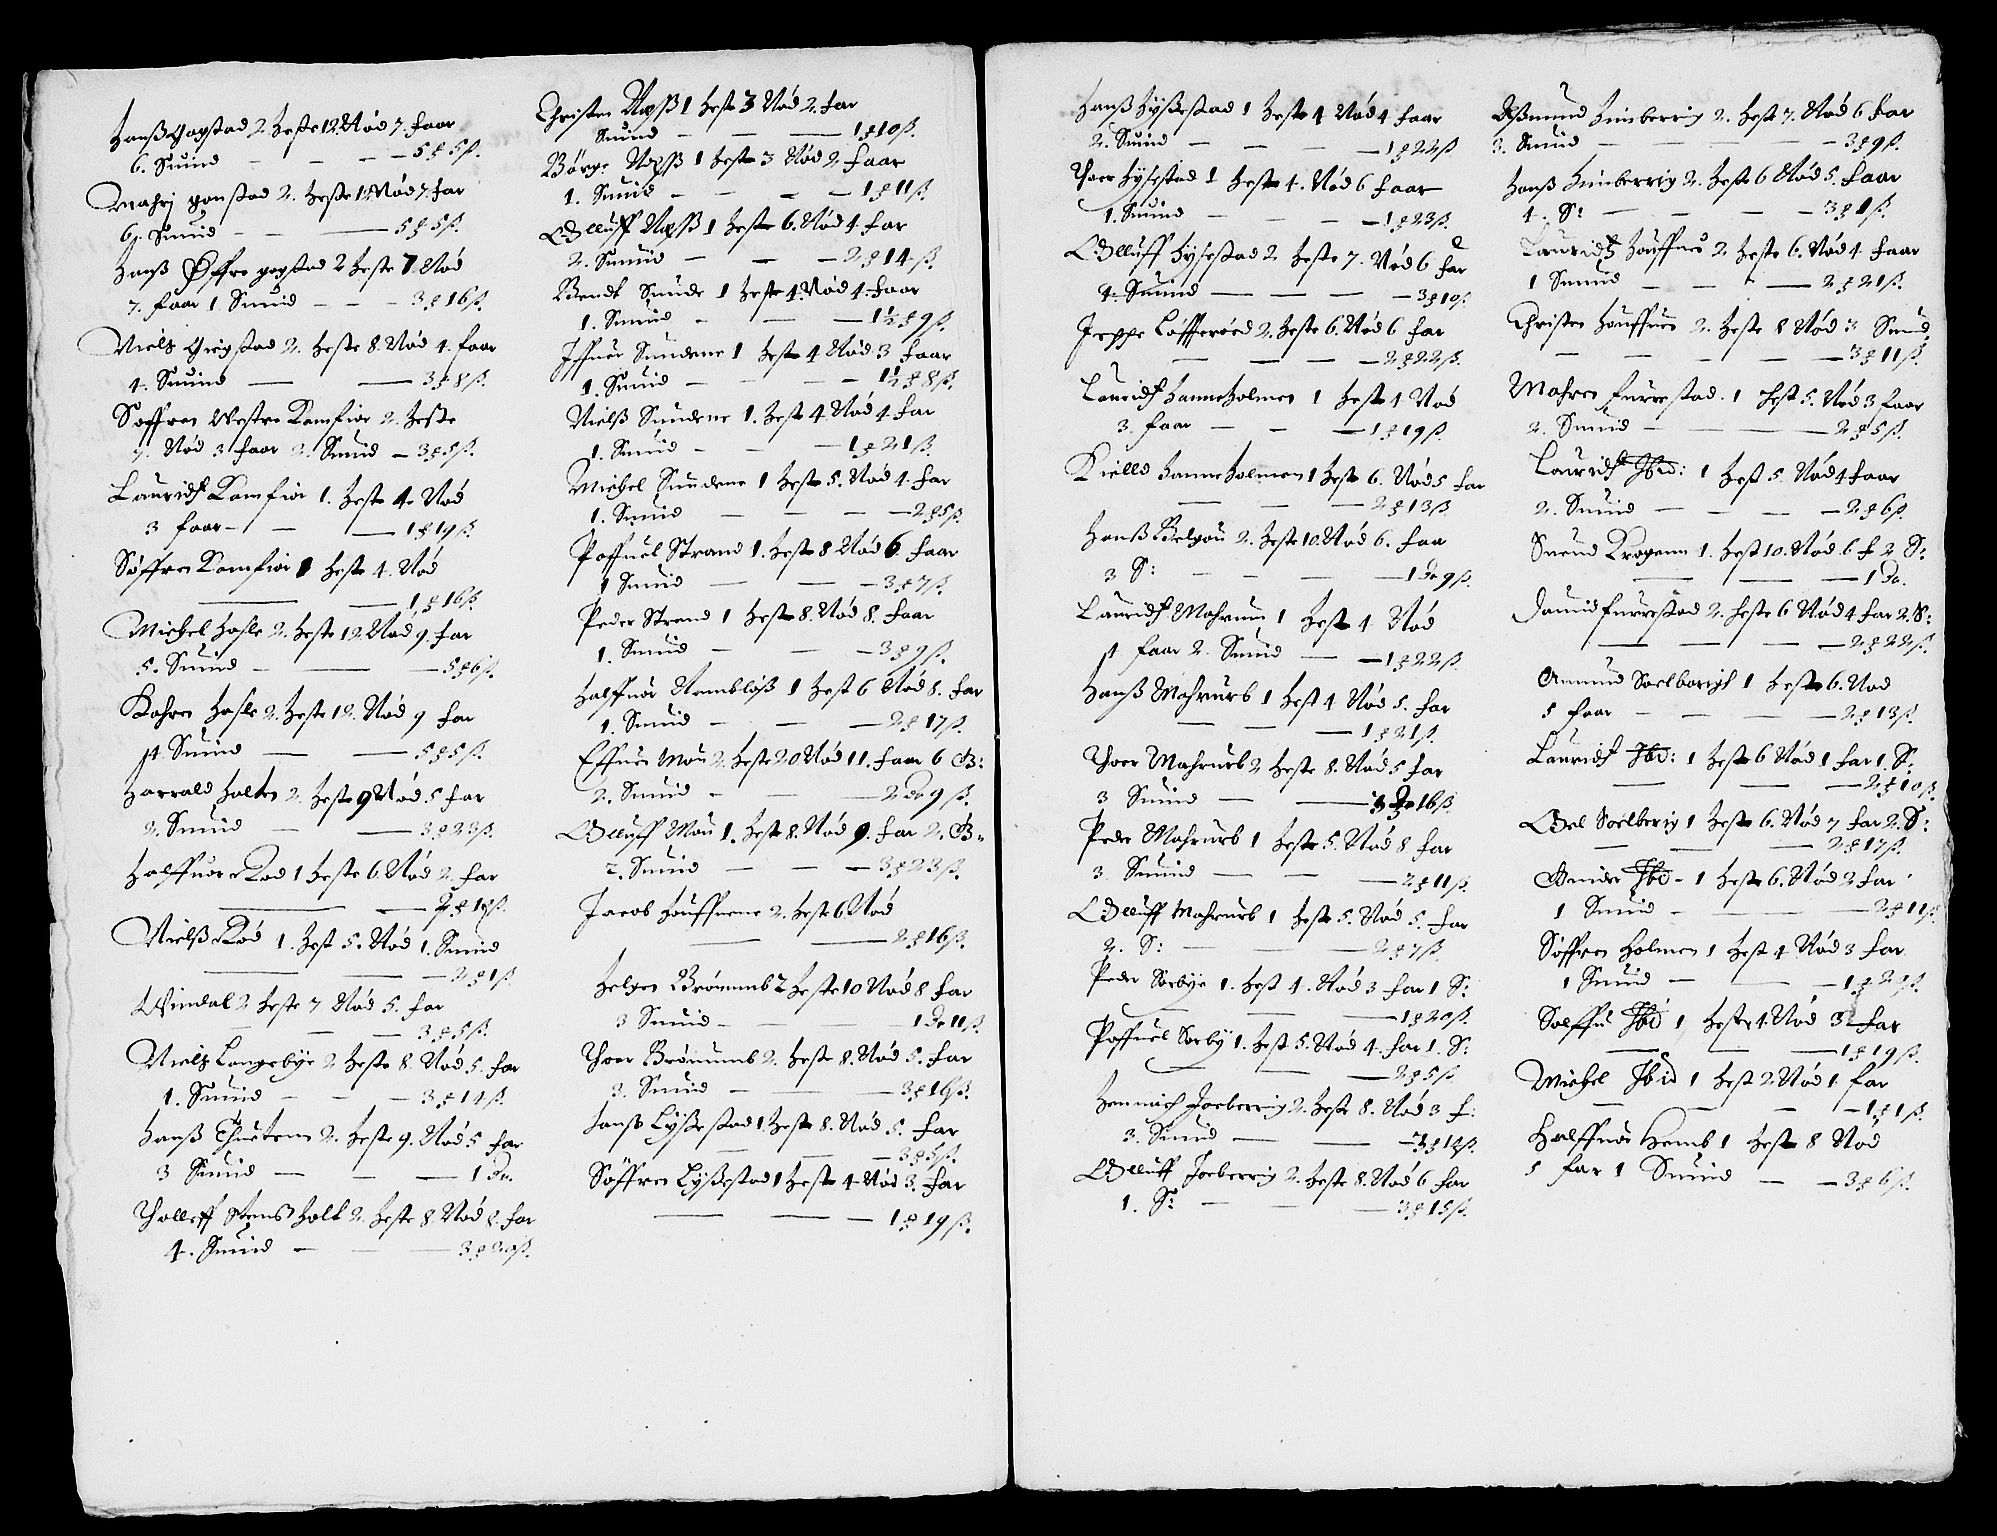 Hanß Gogstad 2. Heste 12. Nød 7. faar
6. Suuin — — — 5 ₰ 5 ß.
Mahrj gogstad 2. Heste 12 Nød 7. far
6. Suuin — — 5 ₰ 5 ß.
Hanß Øffre gogstad 2 Heste 7. Nød
7. faar 1 Suuin — — — 3 ₰ 16 ß.
Niels 2. Heste 8. Nød 4. faar
4. Suuin — — 3 ₰ 8 ß.
Søffren Westre Kamfior 2. Heste
7. Nød 3 faar 2. Suuin — 3 ₰ 5 ß.
Lauridß Kamfior 1. Hest 4. Nød
3 faar — — 1 ₰ 19 ß.
Søffren Kamfior 1 Heste 4. Nød
— — 1 ₰ 16 ß.
Michel Hasle 2. Heste 12. Nød 9. far
5. Suuin — — 5 ₰ 6 ß.
Kahren Hasle 2. Heste 12. Nød 9 far
4 Suuin — — 5 ₰ 5 ß.
Harrald Holten 2. Heste 9 Nød 5 far
2. Suuin — — 3 ₰ 23 ß.
Halffuor Rød 1 Heste 6. Nød 2. far
— — 2 ₰ ß.
Nielß Rød 1. Hest 5. Nød 1. Suuin
— — — 2 ₰ 1 ß.
Windal 2 Heste 7 Nød 5. far
— — — 3 ₰ 5 ß.
Niels Langebye 2 Heste 8. Nød 5. far
1. Suuin — — — 3 ₰ 14 ß.
Hanß 2. Heste 9. Nød 5 far
3 Suuin — — — 1 Dr.
Tolleff Holt 2. Heste 8. Nød 8. far
4. Suuin — — 3 ₰ 20 ß.
Christen Næß 1 Hest 3 Nød 2. far
Suuin — — — 1 ₰ 10 ß.
Børge Næß 1 Heste 3 Nød 2. faar
1. Suuin — — — 1 ₰ 11 ß.
Olluff Næß 1 Heste 6. Nød 4. far
2. Suuin — — — 2 ₰ 14 ß.
Bendt Sunde 1 Heste 4. Nød 4. faar
1. Suuin — — — 1½ ₰ 9 ß.
Iffuer Sundene 1 Hest 4 Nød 3 faar
1. Suuin — — — 1½ ₰ 8 ß.
Nielß Sundene 1. Hest 4. Nød 4. far
1. Suuin — — — 1 ₰ 21 ß.
Michel Sundene 1 Heste 5. Nød 4. far
1. Suuin — — — 2 ₰ 5 ß.
Poffuel Strand 1. Heste 8 Nød 6. faar
1 Suuin — — — 3 ₰ 7 ß.
Peder Strand 1 Heste 8. Nød 8. faar
1. Suuin — — — 3 ₰ 9 ß.
Halffuor 1 Hest 6 Nød 8. far
1. Suuin — — — 2 ₰ 17 ß.
Effuen Mou 2. Heste 20 Nød 11. faar 6 G:
2. Suuin — — 2 Dr 9 ß.
Olluff Mou 1. Heste 8. Nød 9. far 2. G:
2. Suuin — — — 3 ₰ 23 ß.
Jacob Houffuene 2. Heste 6. Nød
— — 2 ₰ 16 ß.
Helgen Brønumb 2 Heste 10 Nød 8 far
3 Suuin — — 1 Dr 11 ß.
Thoer Brønumb 2. Heste 8. Nød 5. far
3. Suuin — — 3 ₰ 16 ß.
Hanß Lyßestad 1. Heste 8. Nød 5. far
— — — 3 ₰ 5 ß.
Søffren Lyßestad 1 Heste 4. Nød 3. far
— — — 1 ₰ 19 ß.
Hanß Hyßestad 1 Heste 4 Nød 4 faar
2. Suuin — — — 1 ₰ 22 ß
Thoer Hyßestad 1 Heste 4. Nød 6 faar
1. Suuin — — — 1 ₰ 23 ß.
Olluff Hyßestad 2 Heste 7. Nød 6 far
4. Suuin — — — 3 ₰ 10 ß.
Jeppe Løfferød 2. Heste 6. Nød 6 far
— — — 2 ₰ 22 ß.
Lauridß Hanneholmen 1 Heste 4 Nød
3. faar — — — 1 ₰ 19 ß.
Kielld Hanneholmen 1 Heste 6. Nød 5 far
— — — 2 ₰ 13 ß.
Hanß Belgou 2. Heste 10. Nød 6. faa
3 S: — — — 1 Dr 9 ß.
Lauridß Mahrum 1 Heste 4 Nød
4 faar 2. Suuin — — 1 ₰ 22 ß.
Hanß Mahrumb 1 Hest 4 Nød 5. far
— — — 1 ₰ 21 ß.
Thoer Mahrumb 2 Heste 8. Nød 5 far
3 Suuin — — 16 ß.
Peder Mahrumb 1 Heste 5. Nød 8 far
3. Suuin — — — 2 ₰ 11 ß.
Olluff Mahrumb 1 Heste 5. Nød 5. far
2. S: — — — 2 ₰ 7 ß.
Peder Sørbye 1. Hest 4. Nød 3 far 1 S:
— — — 1 ₰ 20 ß.
Poffuel Sørby 1. Hest 5. Nød 4. far 1. S:
— — 2 ₰ 5 ß.
Hennich Joeberrig 2. Heste 8. Nød 3 f:
3. Suuin — — 3 ₰ 14 ß.
Olluff Joeberrig 2. Heste 8. Nød 6 far
1. S: — — — 3 ₰ 15 ß.
Aßmund Himberrig 2. Hest 7. Nød 6 far
3. Suuin — — — 3 ₰ 9 ß.
Hanß Himberrig 2. Heste 6 Nød 5. faar
4. S: — — — 3 ₰ 1 ß.
Lauridß Houffue 2. Heste 6. Nød 4. faar
1 Suuin — — — 2 ₰ 21 ß.
Christen Houffuen 2. Heste 8 Nød 3 Suuin
— — — — 3 ₰ 11 ß.
Mahren Furrestad. 1 Hest 5. Nød 3 faar
2. Suuin — — 2 ₰ 5 ß.
Lauridß Ibid: 1 Hest 5. Nød 4 faar
2. Suuin — — — 2 ₰ 6 ß.
Suend Krogenn 1. Hest 10. Nød 6 f 2 S:
— — — 1 Dr.
Dauid Furrestad 2. Heste 6 Nød 4 far 2. S:
— — — 2 ₰ 22 ß.
Amund Soelberigh 1 Heste 6. Nød
5 faar — — — 2 ₰ 13 ß.
Lauridß Ibid: 1 Heste 6 Nød 1 far 1. S:
— — — 2 ₰ 10 ß.
Oel Soelberig 1 Heste 6. Nød 7 far 2. S:
— — — 2 ₰ 17 ß.
Ibid — 1 Heste 6. Nød 2 far
1 Suuin — — — 2 ₰ 11 ß.
Søffren Holmen 1 Hest 4 Nød 3 far
1 Suuin — — — 1 ₰ 20 ß.
Ibid 1 Heste 4. Nød 3 far
— — — 1 ₰ 19 ß.
Michel Ibid 1 Hest 2 Nød 1. far
— — — 1 ₰ 1 ß.
Halffuor Hemb 1 Hest 8 Nød
5 far 1 Suuin — — 3 ₰ 6 ß.